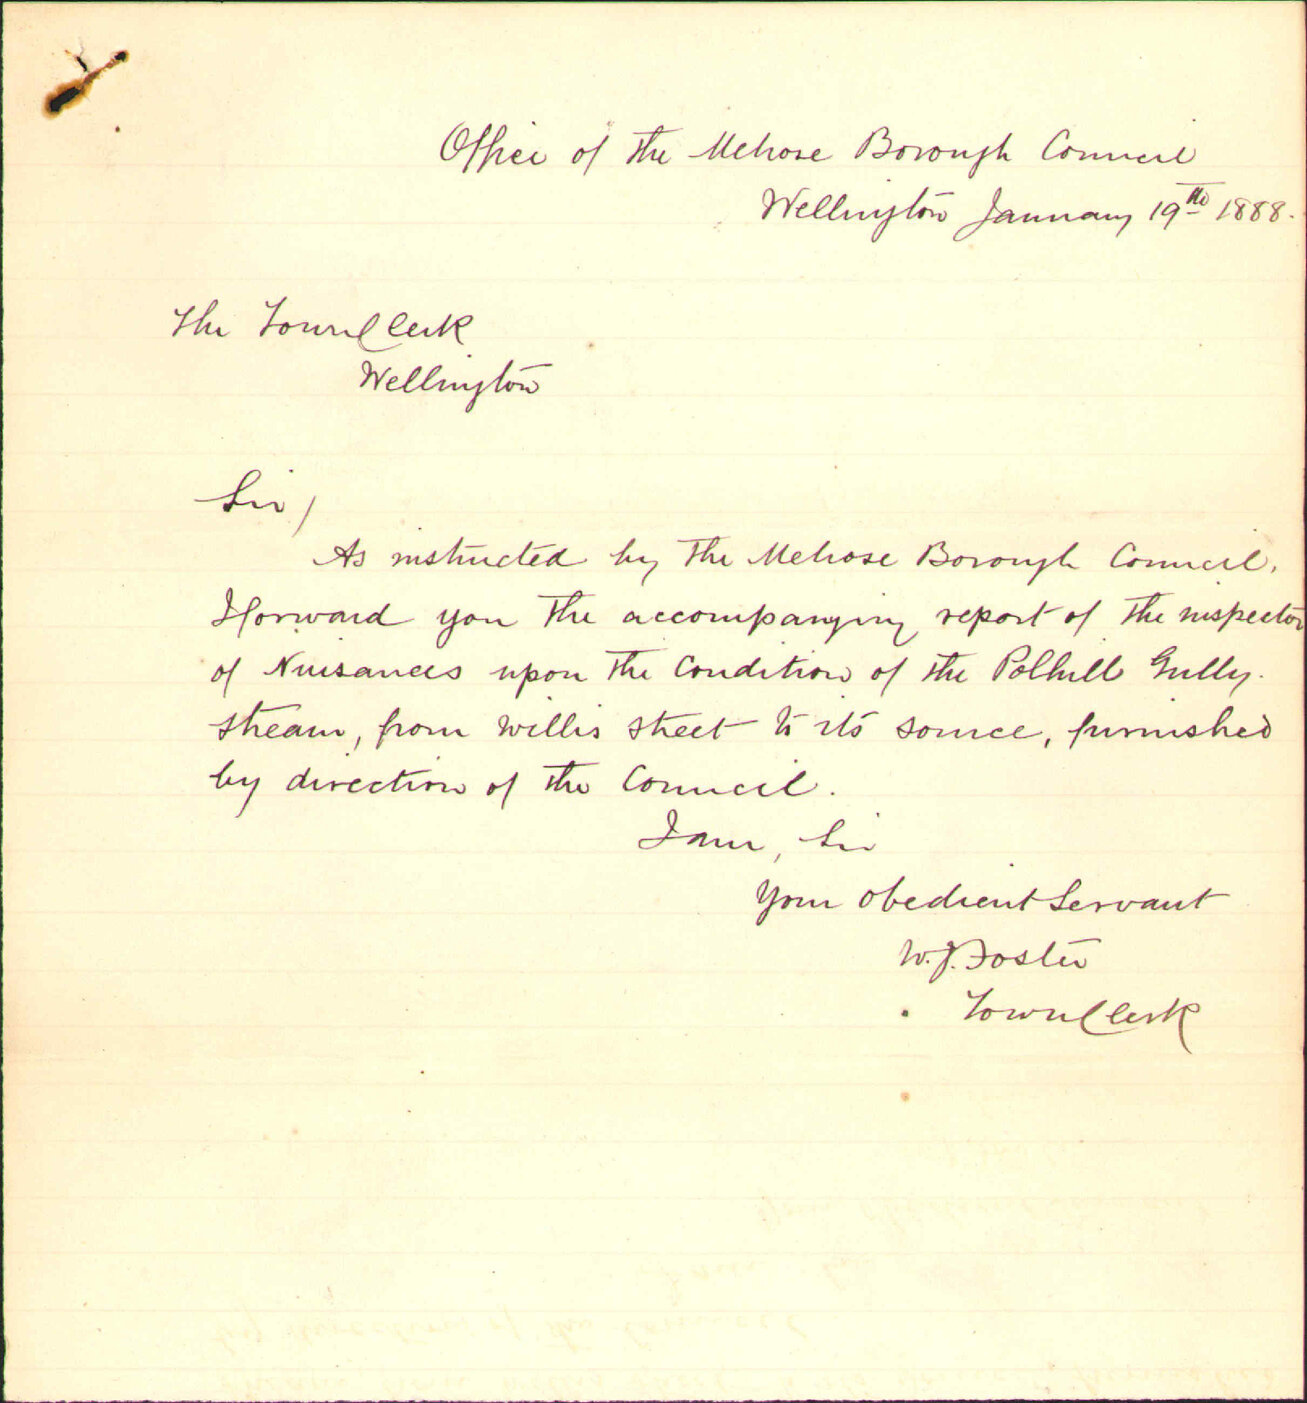 Office of the Melrose Borough Council
Wellington January 19th 1888.
The Town Clerk
Wellington
Sir/
As instructed by the Melrose Borough Council,
I forward you the accompanying report of the inspector
of Nuisances upon the Condition of the Polhill Gully.
stream, from Willis street to its source, furnished
by direction of the Council.
I am, Sir
Your Obedient Servant
W. J. Foster
Town Clerk